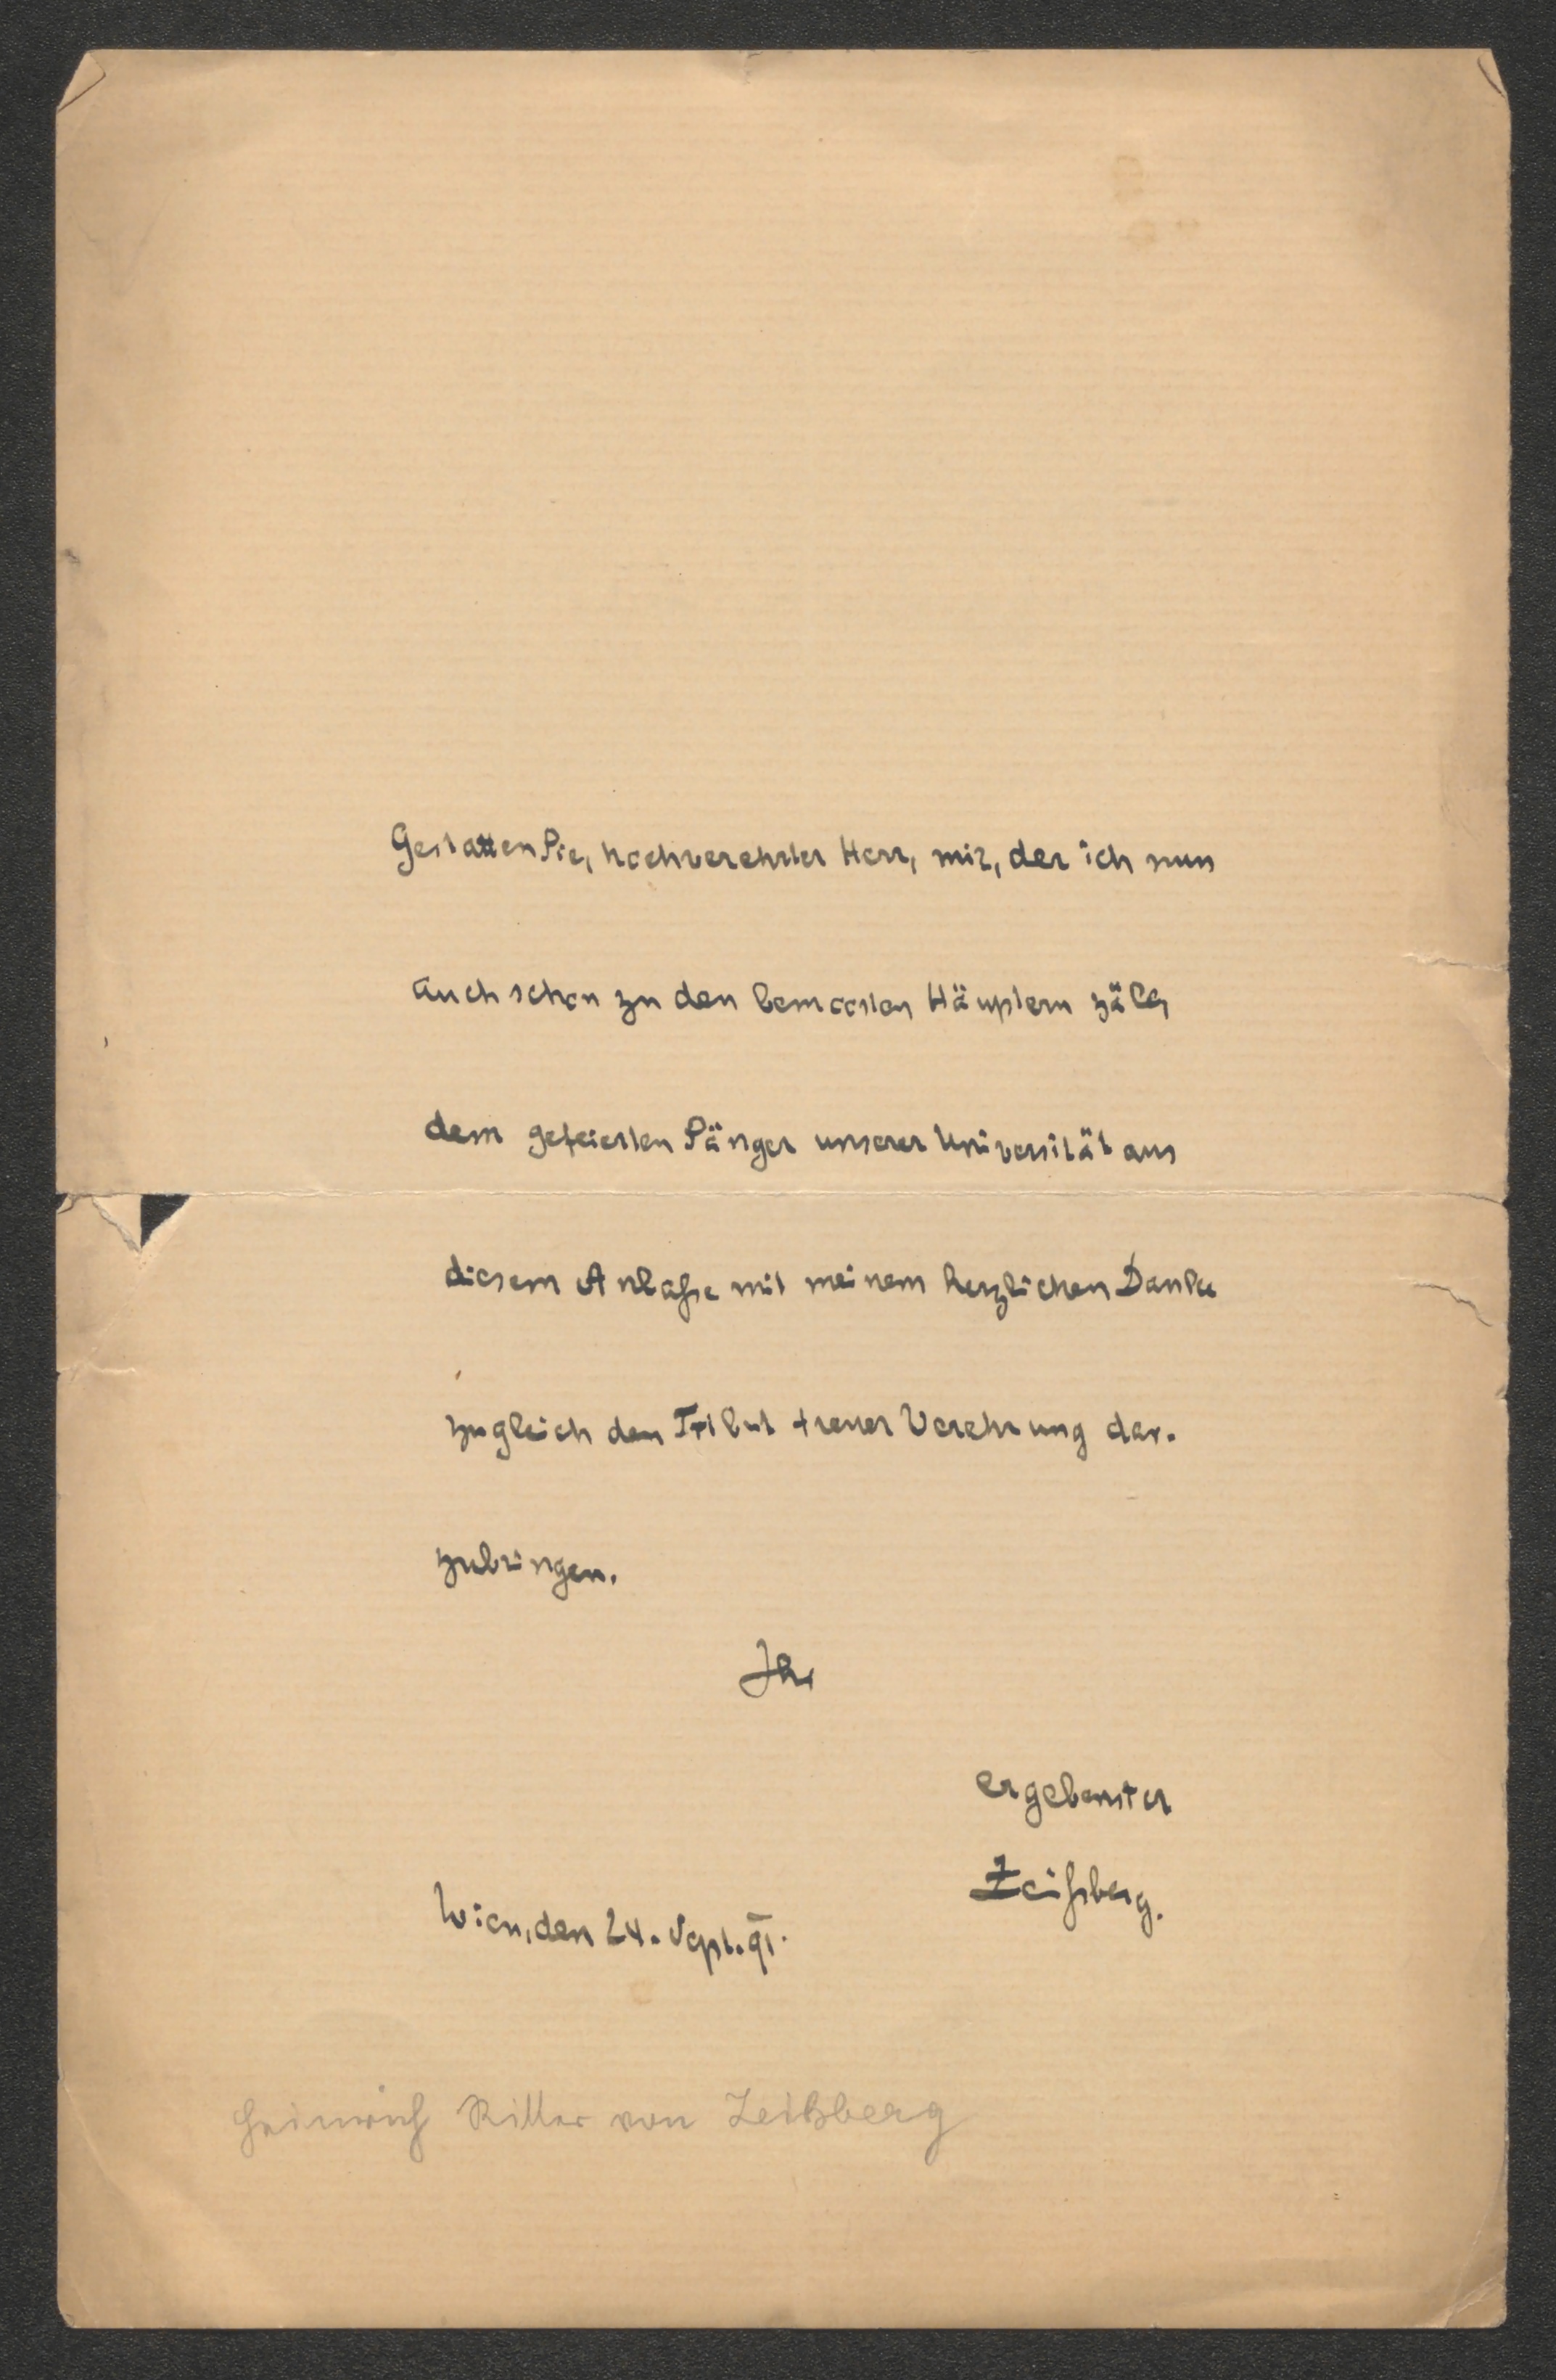 Gestatten Sie, hochverehrter Herr, mir, der ich nun
auch schon zu den bemoosten Häuptern zäle,
dem gefeierten Sänger unserer Universität aus
diesem Anlaße mit meinem herzlichen Danke
zugleich den Tribut treuer Verehrung dar-
zubringen.
Ihr
ergebenster
Zeißberg.
Wien, den 24. Sept. 91.
Heinrich Ritter von Zeißberg